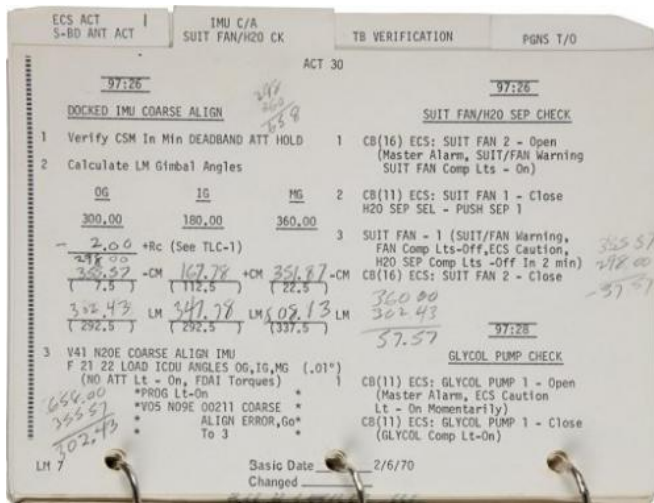 ECS ACT
S-BD ANT ACT
IMU C/A
SUIT FAN/H2O CK
TB VERIFICATION
PGNS T/O
ACT 30
97:26
DOCKED IMU COARSE ALIGN
298
360
658
1 Verify CSM In Min DEADBAND ATT HOLD
2 Calculate LM Gimbal Angles
OG IG MG
300.00 180.00 360.00
- 2.00 +Rc (See TLC-1)
298 00
355.57 -CM 167.78 +CM 351.87 -CM
( 7.5 ) ( 112.5 ) ( 22.5 )
302.43 LM 347.78 LM 008.13 LM
( 292.5 ) ( 292.5 ) (337.5 )
3 V41 N20E COARSE ALIGN IMU
F 21 22 LOAD ICDU ANGLES OG,IG,MG (.01°)
(NO ATT Lt - On, FDAI Torques)
*PROG Lt-On *
*V05 N09E 00211 COARSE *
* ALIGN ERROR,Go*
* To 3 *
658.00
355 57
302.43
97:26
SUIT FAN/H2O SEP CHECK
1 CB(16) ECS: SUIT FAN 2 - Open
(Master Alarm, SUIT/FAN Warning
SUIT FAN Comp Lts - On)
2 CB(11) ECS: SUIT FAN 1 - Close
H2O SEP SEL - PUSH SEP 1
3 SUIT FAN - 1 (SUIT/FAN Warning,
FAN Comp Lts-Off,ECS Caution,
H2O SEP Comp Lts -Off In 2 min)
CB(16) ECS: SUIT FAN 2 - Close
355 57
298 00
-57 57
360 00
302 43
57.57
97:28
GLYCOL PUMP CHECK
1 CB(11) ECS: GLYCOL PUMP 1 - Open
(Master Alarm, ECS Caution
Lt - On Momentarily)
CB(11) ECS: GLYCOL PUMP 1 - Close
(GLYCOL Comp Lt-On)
LM 7
Basic Date 2/6/70
Changed